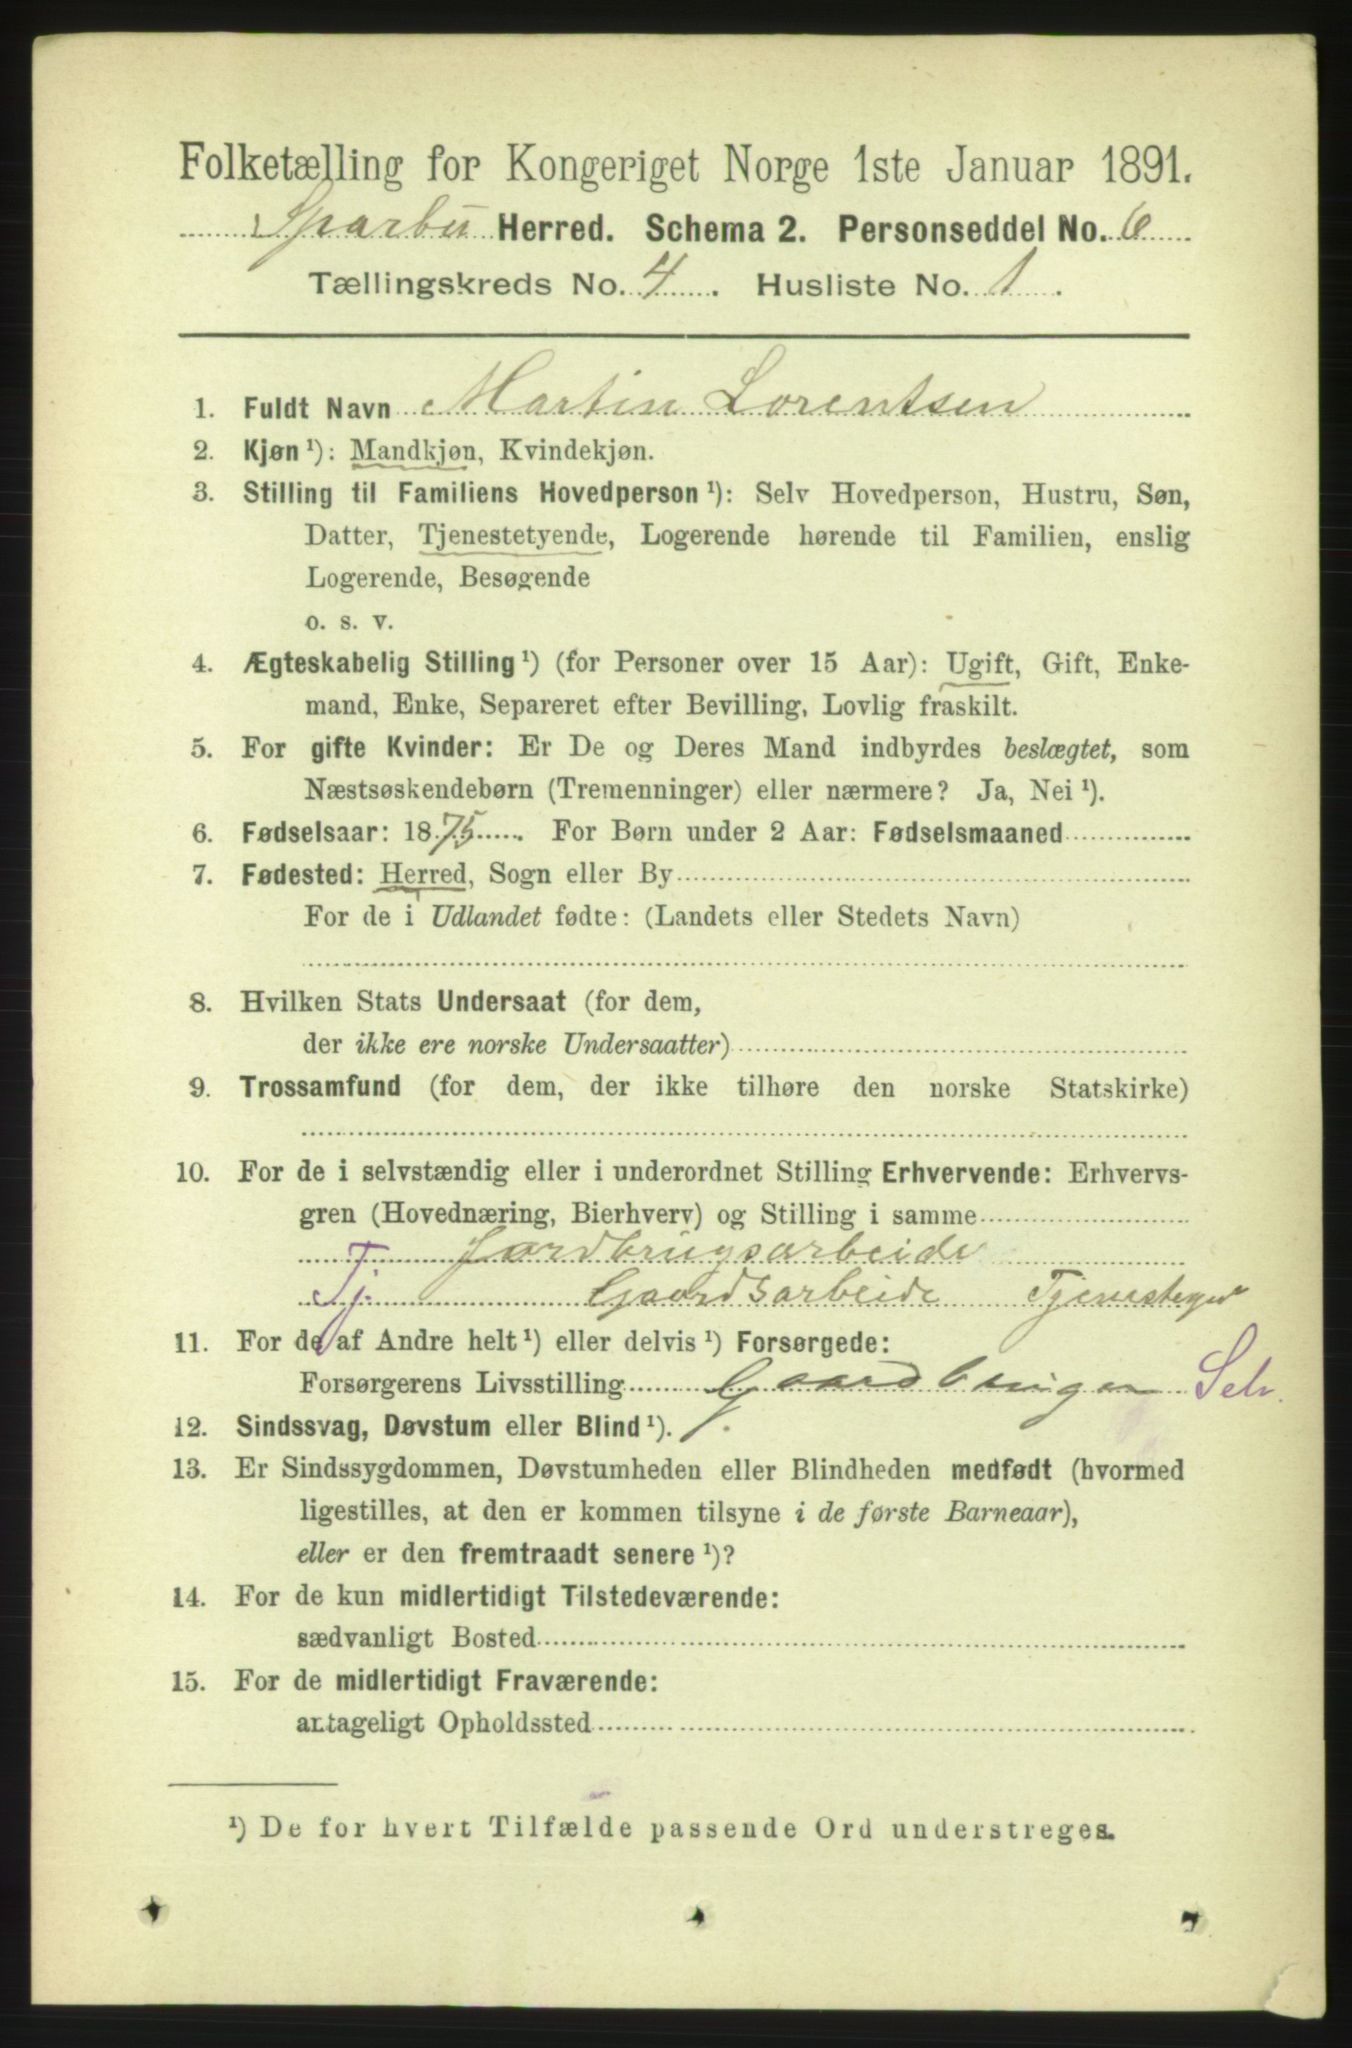 Folketælling for Kongeriget Norge 1ste Januar 1891.
Sparbu Herred. Schema 2. Personseddel No. 6
Tællingskreds No. 4. Husliste No. 1.
1. Fuldt Navn Martin Lorentsen
2. Kjøn ¹): Mandkjøn, Kvindekjøn.
3. Stilling til Familiens Hovedperson ¹): Selv Hovedperson, Hustru, Søn,
Datter, Tjenestetyende, Logerende hørende til Familien, enslig
Logerende, Besøgende
o. s. v.
4. Ægteskabelig Stilling ¹) (for Personer over 15 Aar): Ugift, Gift, Enke-
mand, Enke, Separeret efter Bevilling, Lovlig fraskilt.
5. For gifte Kvinder: Er De og Deres Mand indbyrdes beslægtet, som
Næstsøskendebørn (Tremenninger) eller nærmere? Ja, Nei ¹).
6. Fødselsaar: 1875. For Børn under 2 Aar: Fødselsmaaned
7. Fødested: Herred, Sogn eller By
For de i Udlandet fødte: (Landets eller Stedets Navn)
8. Hvilken Stats Undersaat (for dem,
der ikke ere norske Undersaatter)
9. Trossamfund (for dem, der ikke tilhøre den norske Statskirke)
10. For de i selvstændig eller i underordnet Stilling Erhvervende: Erhvervs-
gren (Hovednæring, Bierhverv) og Stilling i samme
Jordbrugsarbeide
Tj. Gaardsarbeide
11. For de af Andre helt ¹) eller delvis ¹) Forsørgede:
Forsørgerens Livsstilling Gaardbruger Selv.
12. Sindssvag, Døvstum eller Blind ¹).
13. Er Sindssygdommen, Døvstumheden eller Blindheden medfødt (hvormed
ligestilles, at den er kommen tilsyne i de første Barneaar),
eller er den fremtraadt senere ¹)?
14. For de kun midlertidigt Tilstedeværende:
sædvanligt Bosted
15. For de midlertidigt Fraværende:
antageligt Opholdssted
¹) De for hvert Tilfælde passende Ord understreges.